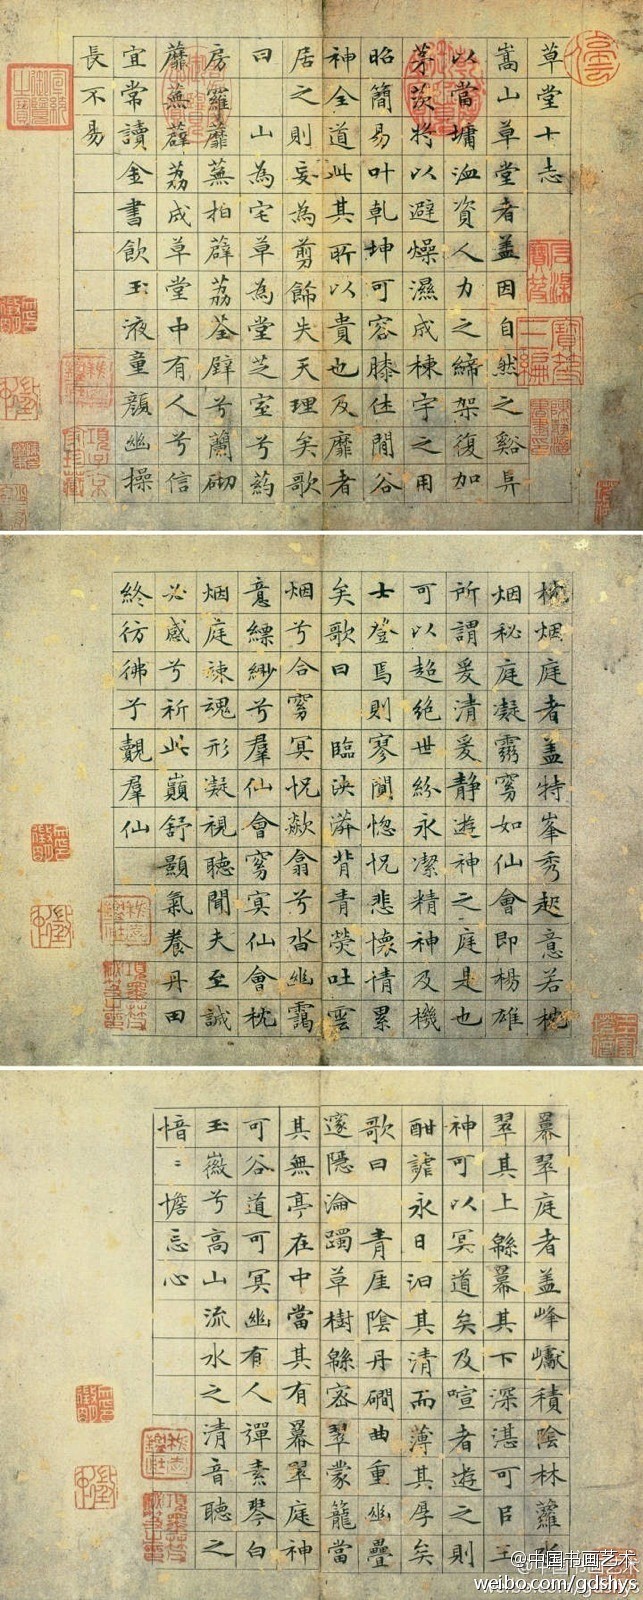 草堂十志
嵩山草堂者盖因自然之谿阜
以當墉洫資人力之締架復加
茅茨將以避燥濕成棟宇之用
昭簡易叶乾坤可容膝休閒谷
神全道此其所以貴也及靡者
居之則妄為剪餝失天理矣歌
曰 山為宅草為堂芝室兮葯
房羅蘼蕪拍薜荔荃壁兮蘭砌
蘼蕪薜荔成草堂中有人兮信
宜常讀金書飲玉液童顏幽操
長不易
枕烟庭者盖特峯秀起意若枕
烟秘庭凝霛窅如仙會即楊雄
所謂爰清爰静遊神之庭是也
可以超绝世紛永潔精神及機
士登焉則寥闃惚怳悲懷情累
矣歌曰 臨泱漭背青熒吐雲
烟兮合窅冥怳欻翕兮沓幽靄
意縹緲兮羣仙會窅冥仙會枕
烟庭竦魂形凝視聽聞夫至誠
必感兮祈此巔舒顥氣養丹田
終彷彿乎覿羣仙
冪翠庭者盖峰巘積陰林蘿
翠其上緜冪其下深湛可
神可以冥道矣及喧者遊之則
酣謔永日汩其清而薄其厚矣
歌曰 青厓陰丹磵曲重幽疊
邃隱淪躅草樹緜密翠蒙籠當
其無亭在中當其有冪翠庭神
可谷道可冥幽有人彈素琴白
玉徽兮高山流水之清音聽之
愔〻憺忘心
@中国书画艺术
weibo.com/gdshys